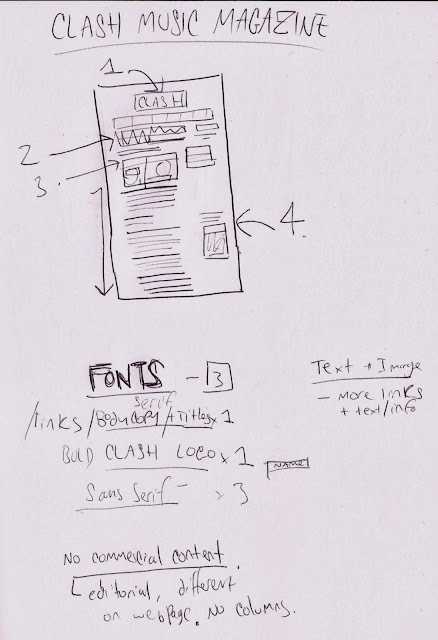 CLASH MUSIC MAGAZINE
1
CLASH
2
3.
4.
FONTS - 3
Serif
/links /Body copy /+Titles x 1
BOLD CLASH LOGO x 1
NAME
Sans Serif - x 3
Text + Image
- More links
+ text/info
No commercial content.
editorial, different
on webpage. No columns.